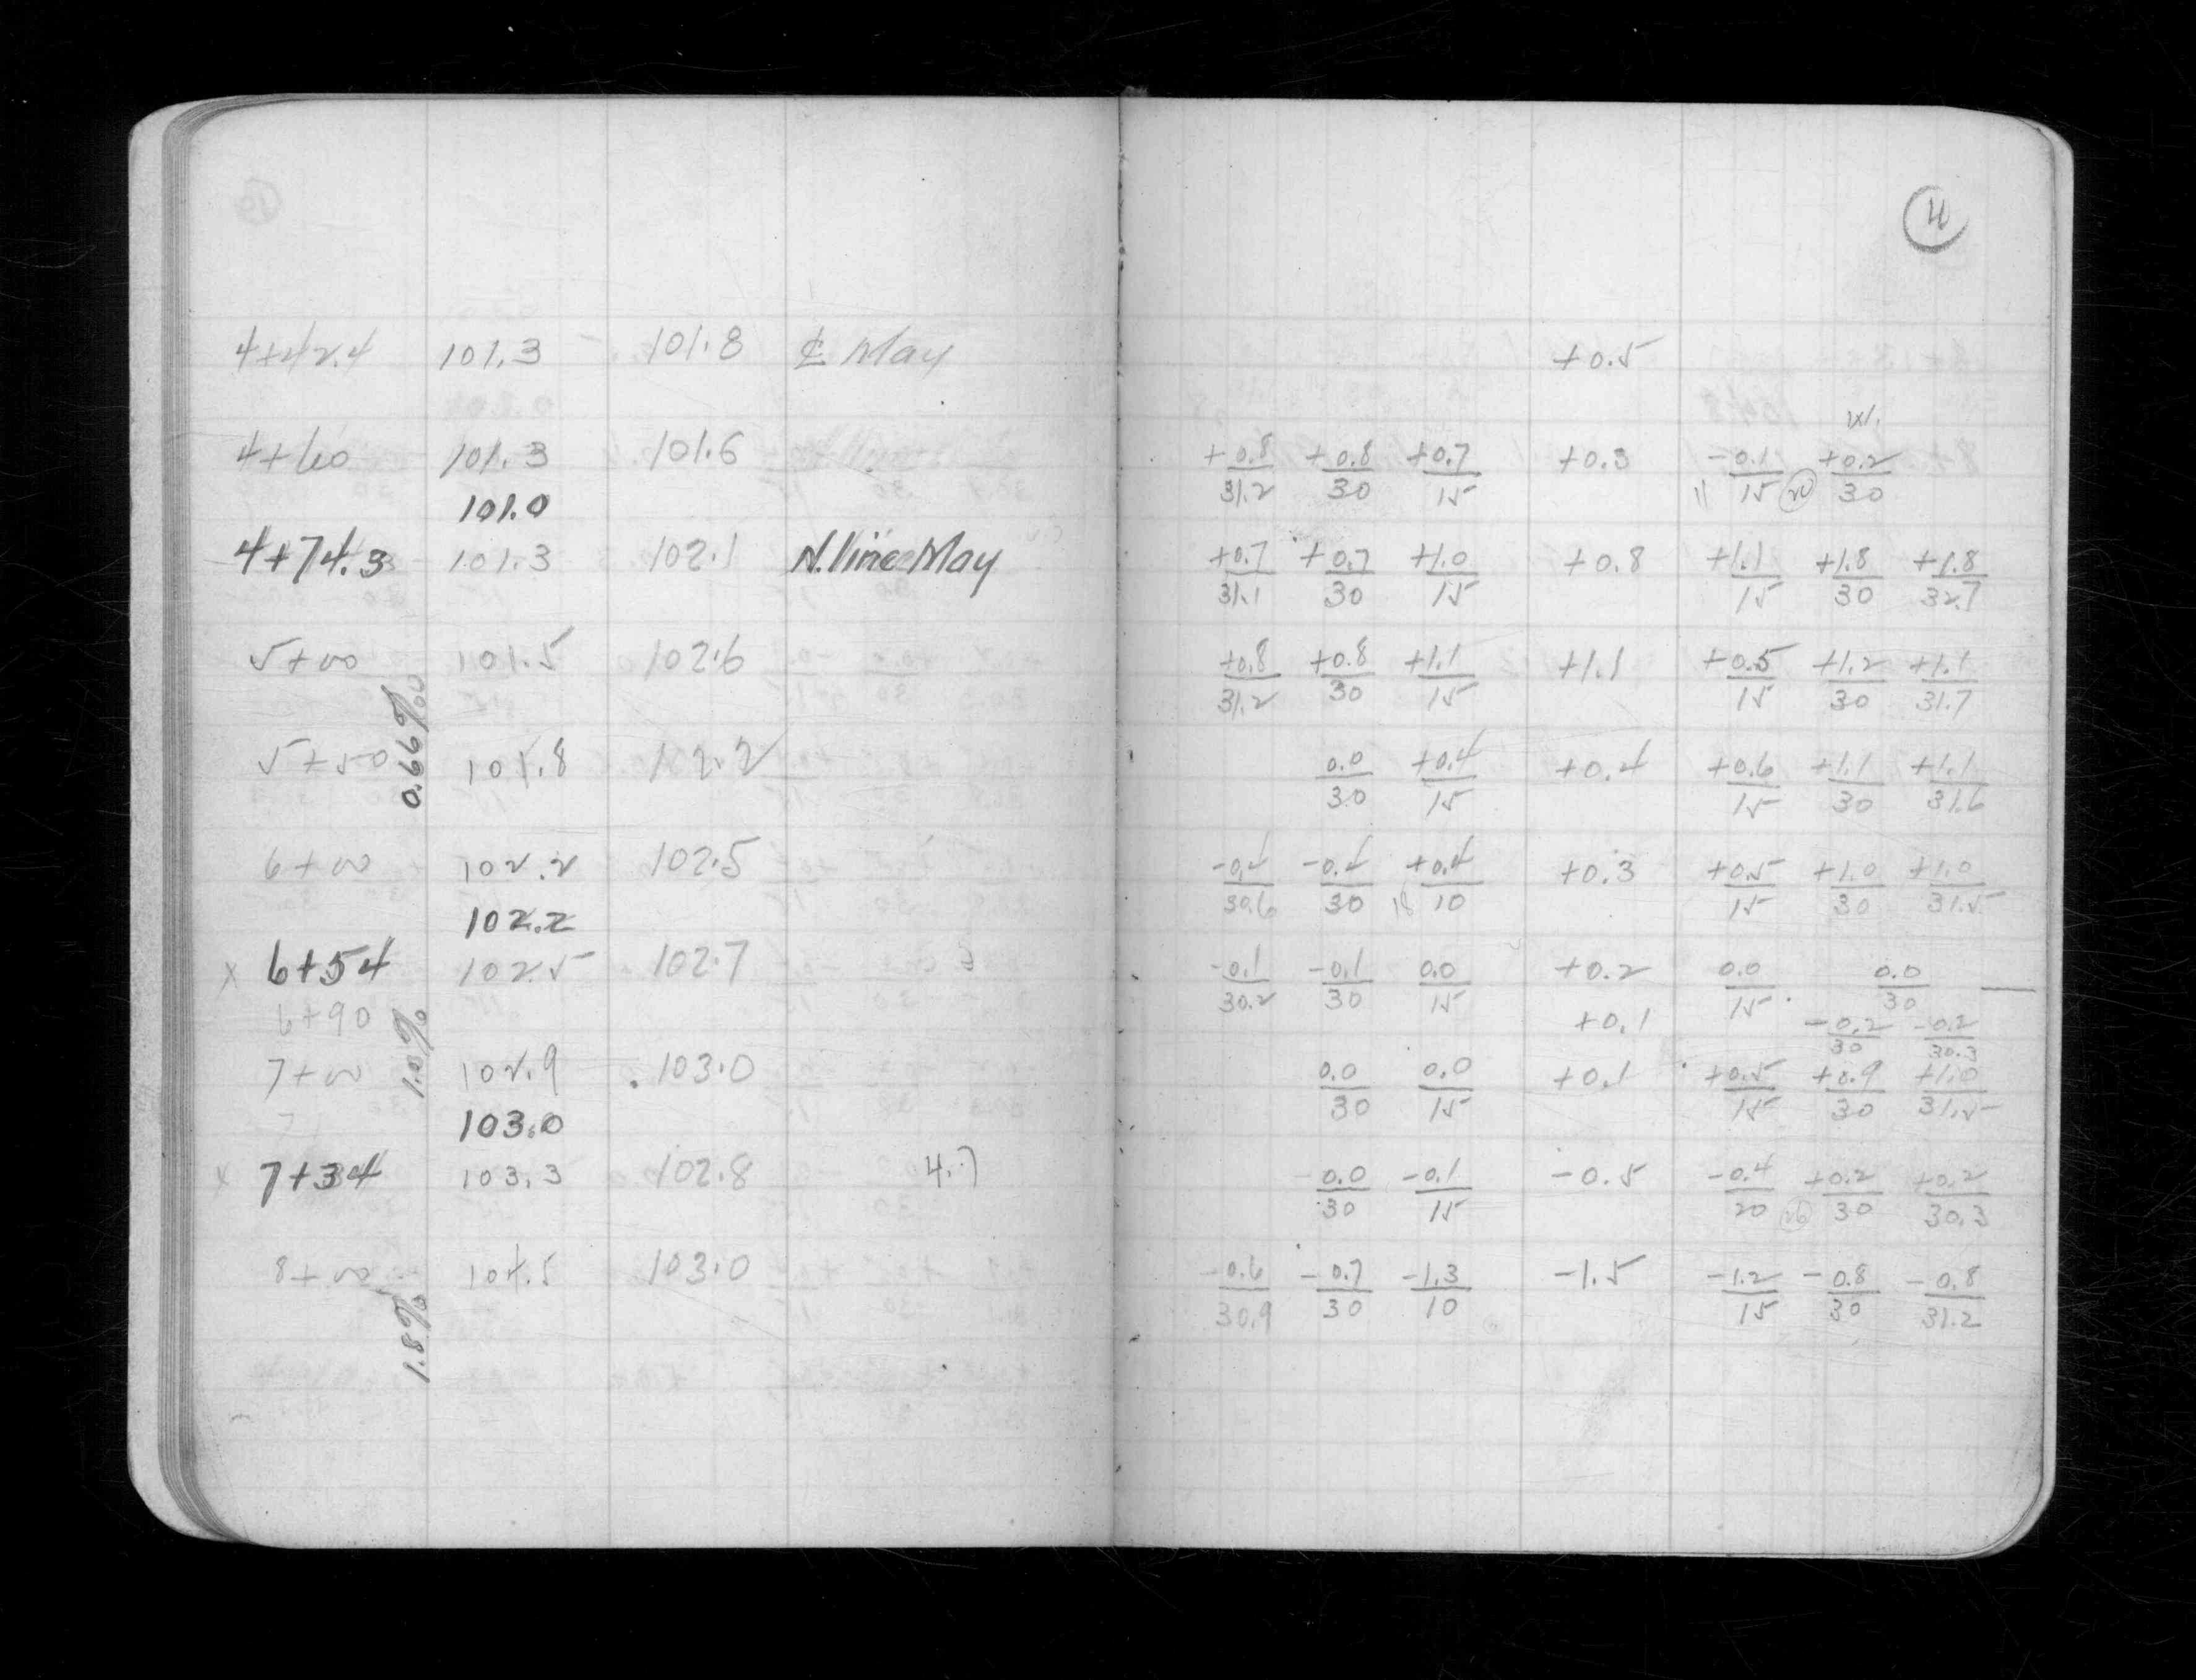 4
4+42.4 101.3 101.8 ℄ May +0.5
W.
4+60 101.3 101.6 +0.8/31.2 +0.8/30 +0.7/15 +0.3 -0.1/15 +0.2/30
11 20
101.0
4+74.3 101.3 102.1 N. line May +0.7/31.1 +0.7/30 +1.0/15 +0.8 +1.1/15 +1.8/30 +1.8/32.7
5+00 101.5 102.6 +0.8/31.2 +0.8/30 +1.1/15 +1.1 +0.5/15 +1.2/30 +1.1/31.7
0.66%
5+50 101.8 102.2 0.0/30 +0.4/15 +0.4 +0.6/15 +1.1/30 +1.1/31.6
6+00 102.2 102.5 -0.4/30.6 -0.4/30 +0.4/10 +0.3 +0.5/15 +1.0/30 +1.0/31.5
18
102.2
x 6+54 102.5 102.7 -0.1/30.2 -0.1/30 0.0/15 +0.2 0.0/15 0.0/30
6+90 +0.1 -0.2/30 -0.2/30.3
1.0%
7+00 102.9 103.0 0.0/30 0.0/15 +0.1 +0.5/15 +0.9/30 +1.0/31.5
7 103.0
x 7+34 103.3 102.8 4.7 0.0/30 -0.1/15 -0.5 -0.4/20 +0.2/30 +0.2/30.3
26
8+00 104.5 103.0 -0.6/30.9 -0.7/30 -1.3/10 -1.5 -1.2/15 -0.8/30 -0.8/31.2
1.8%